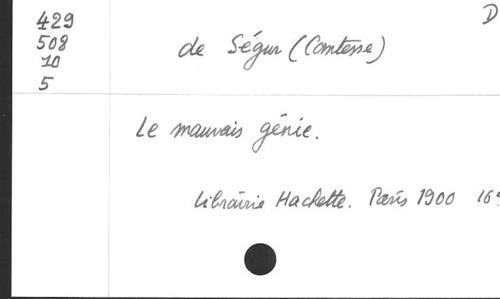 D
429
508
10
5
de Ségur (Comtesse)
Le mauvais génie.
Librairie Hachette. Paris 1900 16°